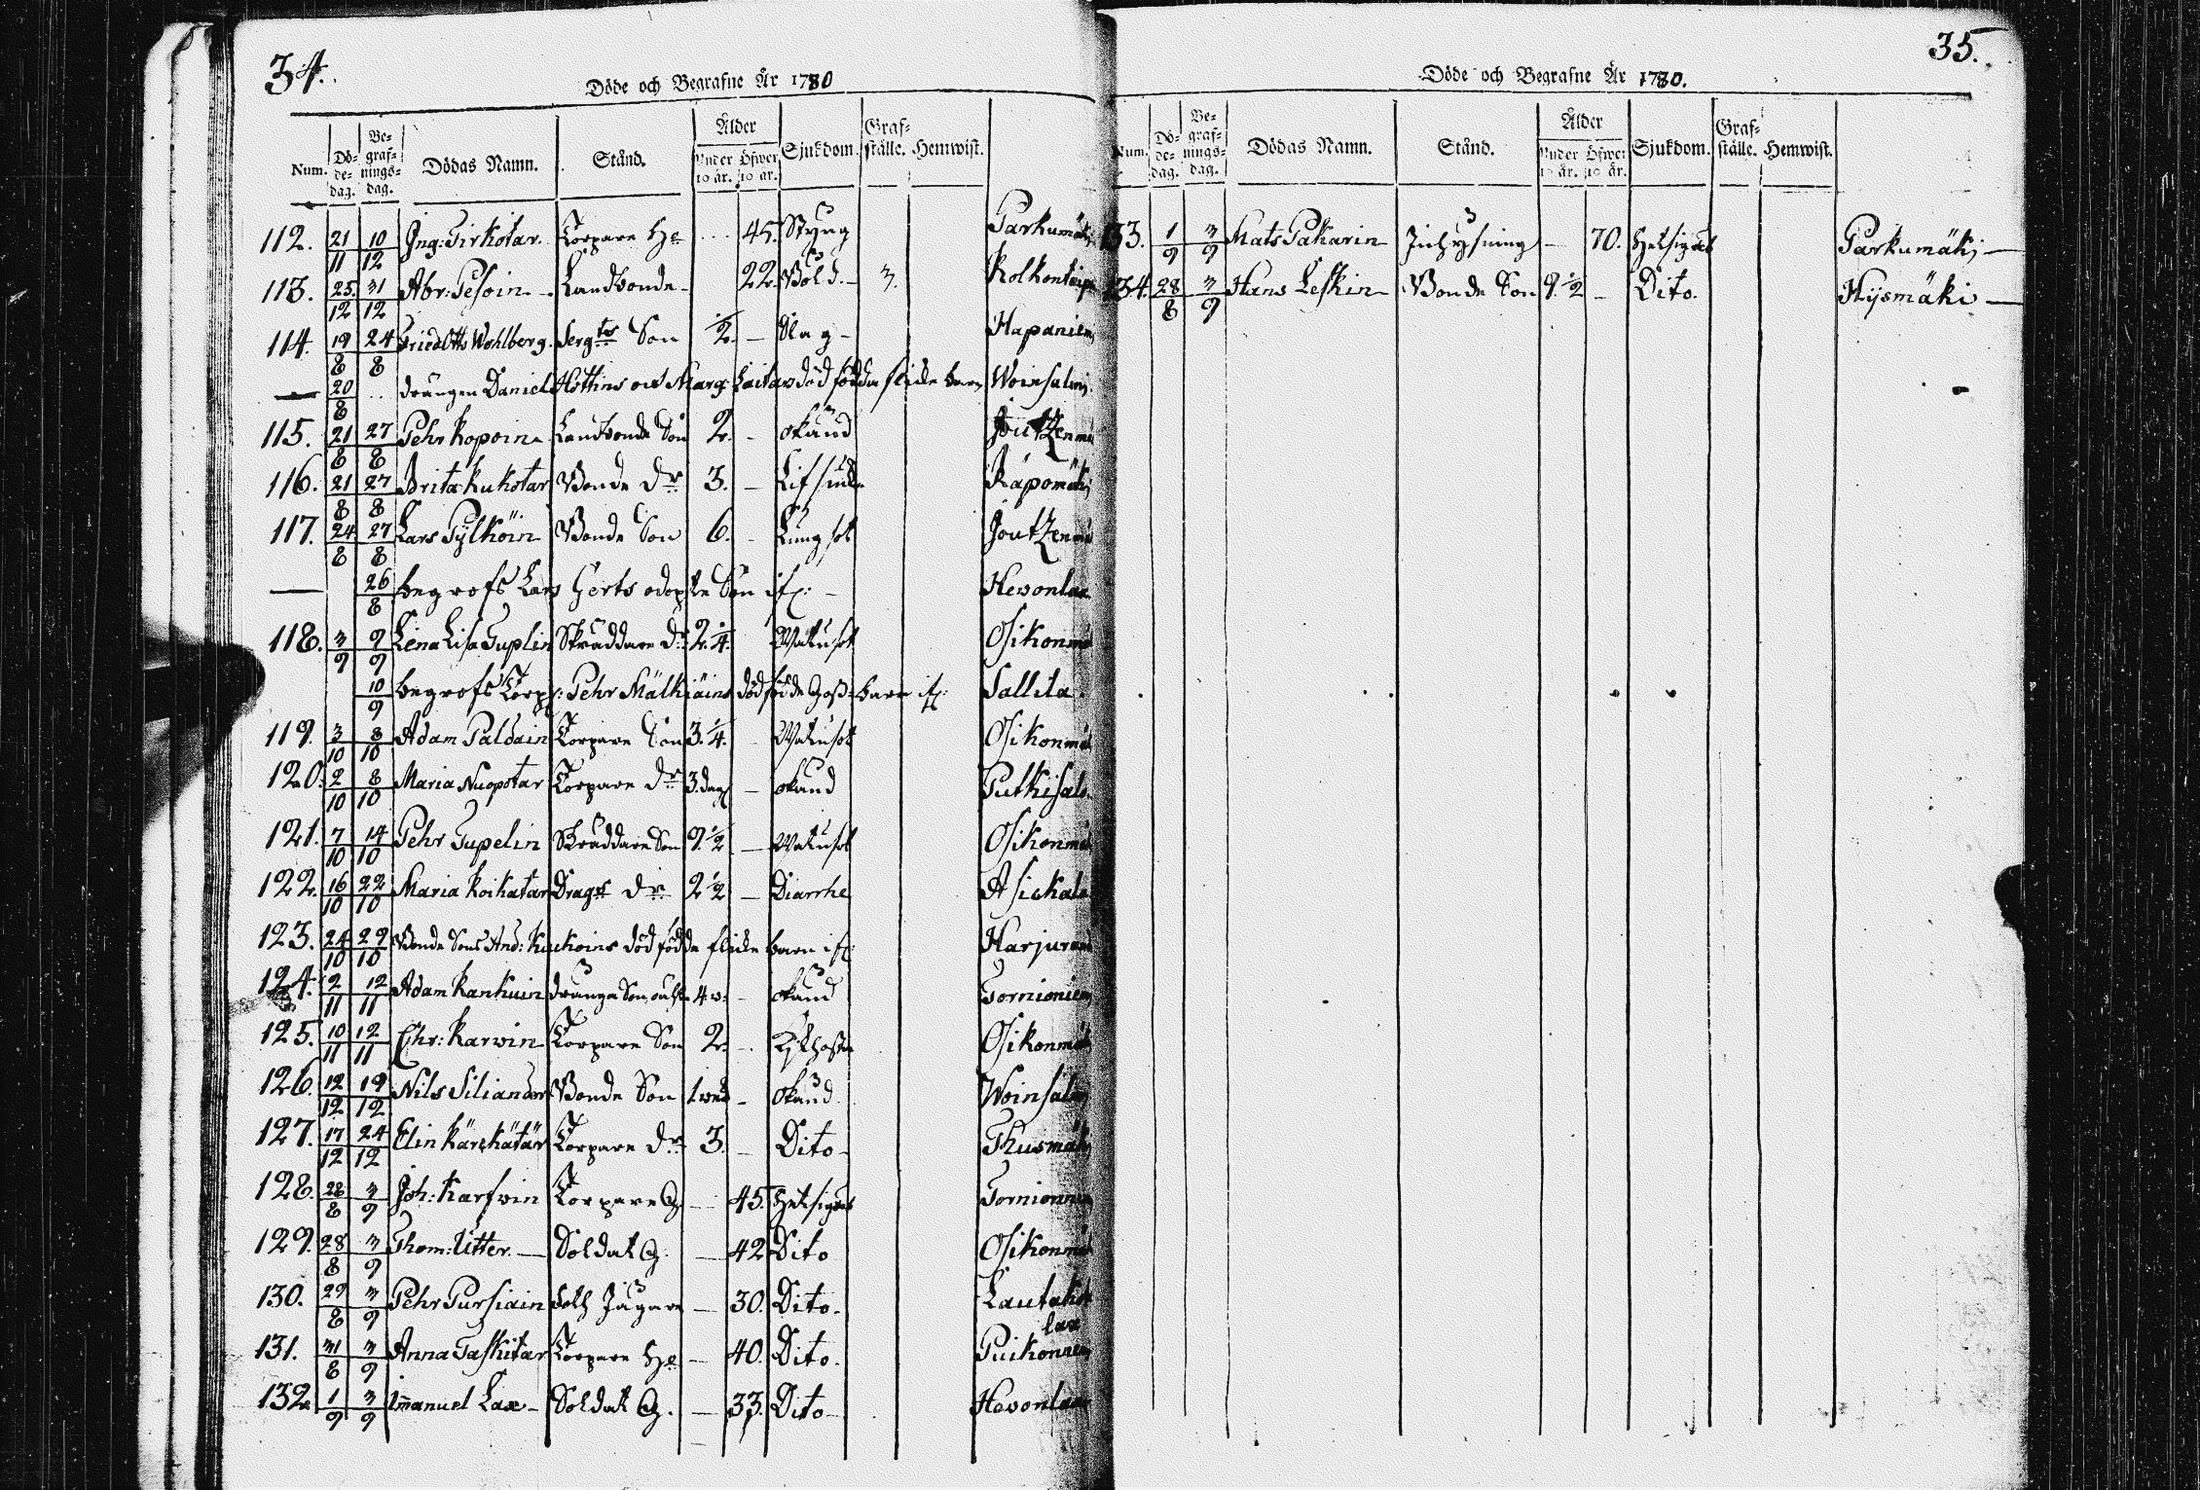 34.
Döde och Begrafne År 1780
Num. Dö-de-dag. Be-graf-nings-dag. Dödas Namn. Stånd. Ålder Under 10 år. Öfwer 10 år. Sjukdom. Graf-ställe. Hemwist.
112. 21/11 10/12 Ing: Tirkotar Torpare H: 45. Styng Parkumäki
113. 25/12 31/12 Abr: Pesoin Landbonde 22. 3.
114. 19/8 24/8 Otto Wohlberg. Serg:ts Son 1/2 — Slag — Hapaniem
— 20/8 drängen Daniel Hottins och Marg: dödfödda flicke barn Woinsalmi
115. 21/8 27/8 Pehr Kopoin Landbonde Son 2. — okänd
116. 21/8 27/8 Brita Kukotar Bonde d:r 3. — Räpomäki
117. 24/8 27/8 Lars Pylköin Bonde Son 6. — Lungsot Joutzenmä
— 26/8 begrofs Lars Son Hevonlax
118. 3/9 9/9 Lena Lisa Tuplin Skräddare d:r 2 1/4 Watusot Osikonmä
10/9 begrofs Torp: Pehr Mälkiäins dödföde Gosse barn Sallila
119. 3/10 8/10 Adam Paldain Torpare Son 3 1/4 — Watusot Osikonmä
120. 2/10 8/10 Maria Nuopotar Torpare d:r 3 dag — okänd Putkisalo
121. 7/10 14/10 Pehr Tupelin Skräddare Son 9 1/2 — Watusot Osikonmä
122. 16/10 22/10 Maria Koikatar Drag:s d:r 2 1/2 — Diarrhe Asickala
123. 24/10 29/10 Bonde Sons And: Kuckoins dödfödde flicke barn Harjuran
124. 2/11 12/11 Adam Kankuin drängs Son 4 w: — okänd Tornioniem
125. 10/11 12/11 Chr: Karwin Torpare Son 2. — Kikhosta Osikonmä
126. 12/12 19/12 Nils Siliander Bonde Son 1 — okänd Woinsalm
127. 17/12 24/12 Elin Kärckätär Torpare d:r 3. — Dito — Thusmäki
128. 28/8 3/9 Joh: Karfwin Torpare — 45. Hetsig Torninniem
129. 28/8 3/9 Thom: Utter — Soldat — 42 Dito Osikonmä
130. 29/8 3/9 Pehr Pursiain Jägare — 30. Dito. Lautakotalax
131. 31/8 3/9 Anna Taskitar Torpare H: — 40. Dito. Puikonniem
132. 1/9 3/9 Imanuel Lax — Soldat — 33. Dito — Hevonlax
35.
Döde och Begrafne År 1780.
Num. Dö-de-dag. Be-graf-nings-dag. Dödas Namn. Stånd. Ålder Under 10 år. Öfwer 10 år. Sjukdom. Graf-ställe. Hemwist.
133. 1/9 3/9 Mats Pakarin Inhysning — 70. Hetsig Parkumäki —
134. 28/8 3/9 Hans Leskin Bonde Son 9 1/2 — Dito. Hysmäki —